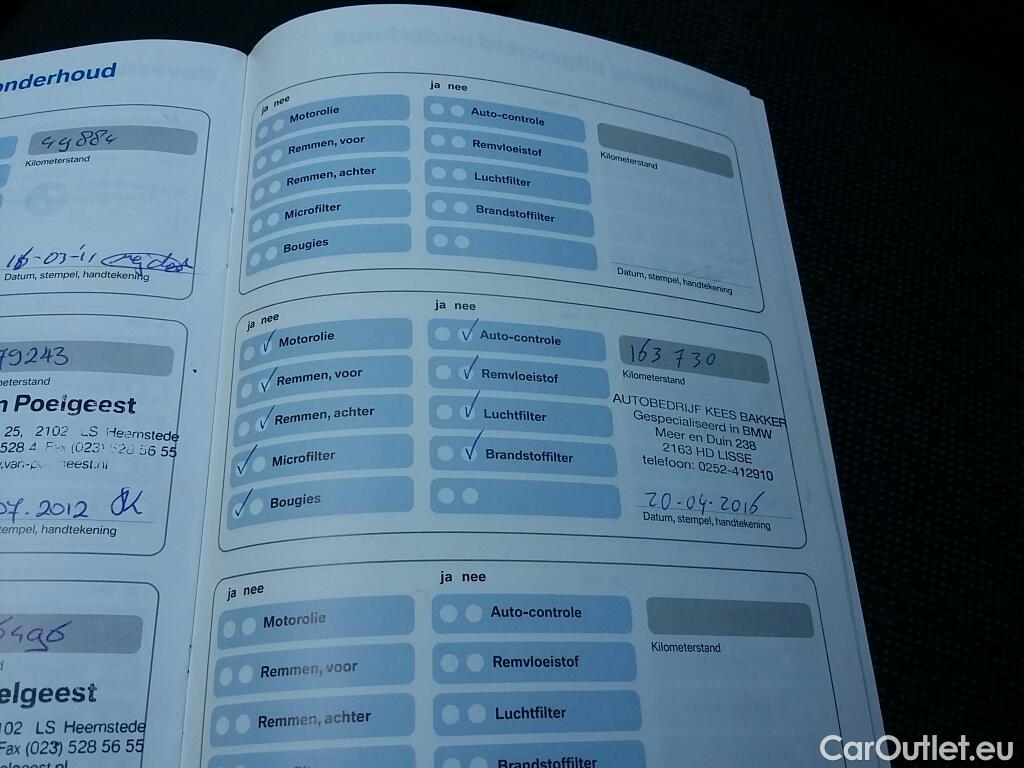 onderhoud
49884
Kilometerstand
16-03-'11
Datum, stempel, handtekening
79243
Poelgeest
25, 2102 LS Heemstede
528 56 55
07.2012
handtekening
elgeest
102 LS Heemstede
Fax (023) 528 56 55
ja nee
Motorolie
Remmen, voor
Remmen, achter
Microfilter
Bougies
ja nee
Auto-controle
Remvloeistof
Luchtfilter
Brandstoffilter
Kilometerstand
Datum, stempel, handtekening
ja nee
Motorolie
Remmen, voor
Remmen, achter
Microfilter
Bougies
ja nee
Auto-controle
Remvloeistof
Luchtfilter
Brandstoffilter
163.730
Kilometerstand
AUTOBEDRIJF KEES BAKKER
Gespecialiseerd in BMW
Meer en Duin 238
2163 HD LISSE
telefoon: 0252-412910
20-04-2016
Datum, stempel, handtekening
ja nee
Motorolie
Remmen, voor
Remmen, achter
ja nee
Auto-controle
Remvloeistof
Luchtfilter
Brandstoffilter
Kilometerstand
CarOutlet.eu